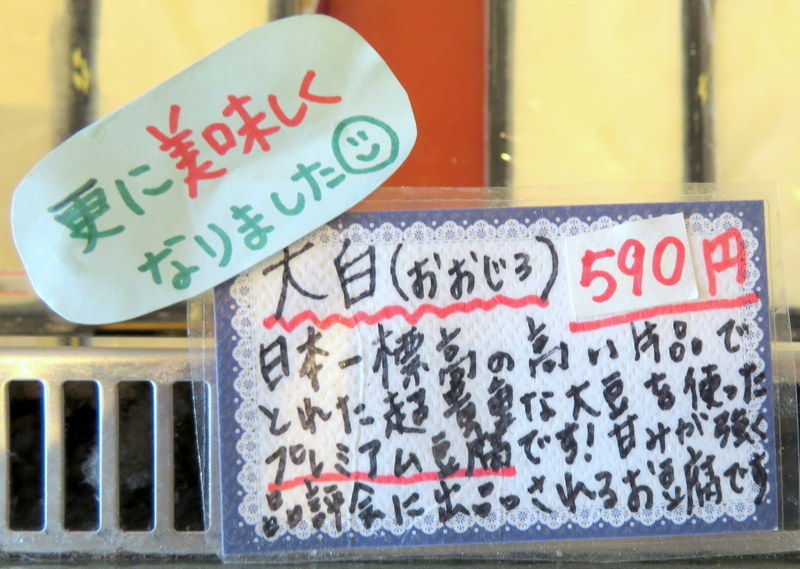 更に美味しく
なりました
大白(おおじろ)
590円
日本一標高の高い片品で
とれた超貴重な大豆を使った
プレミアム豆腐です!甘みが強く
品評会に出品されるお豆腐です